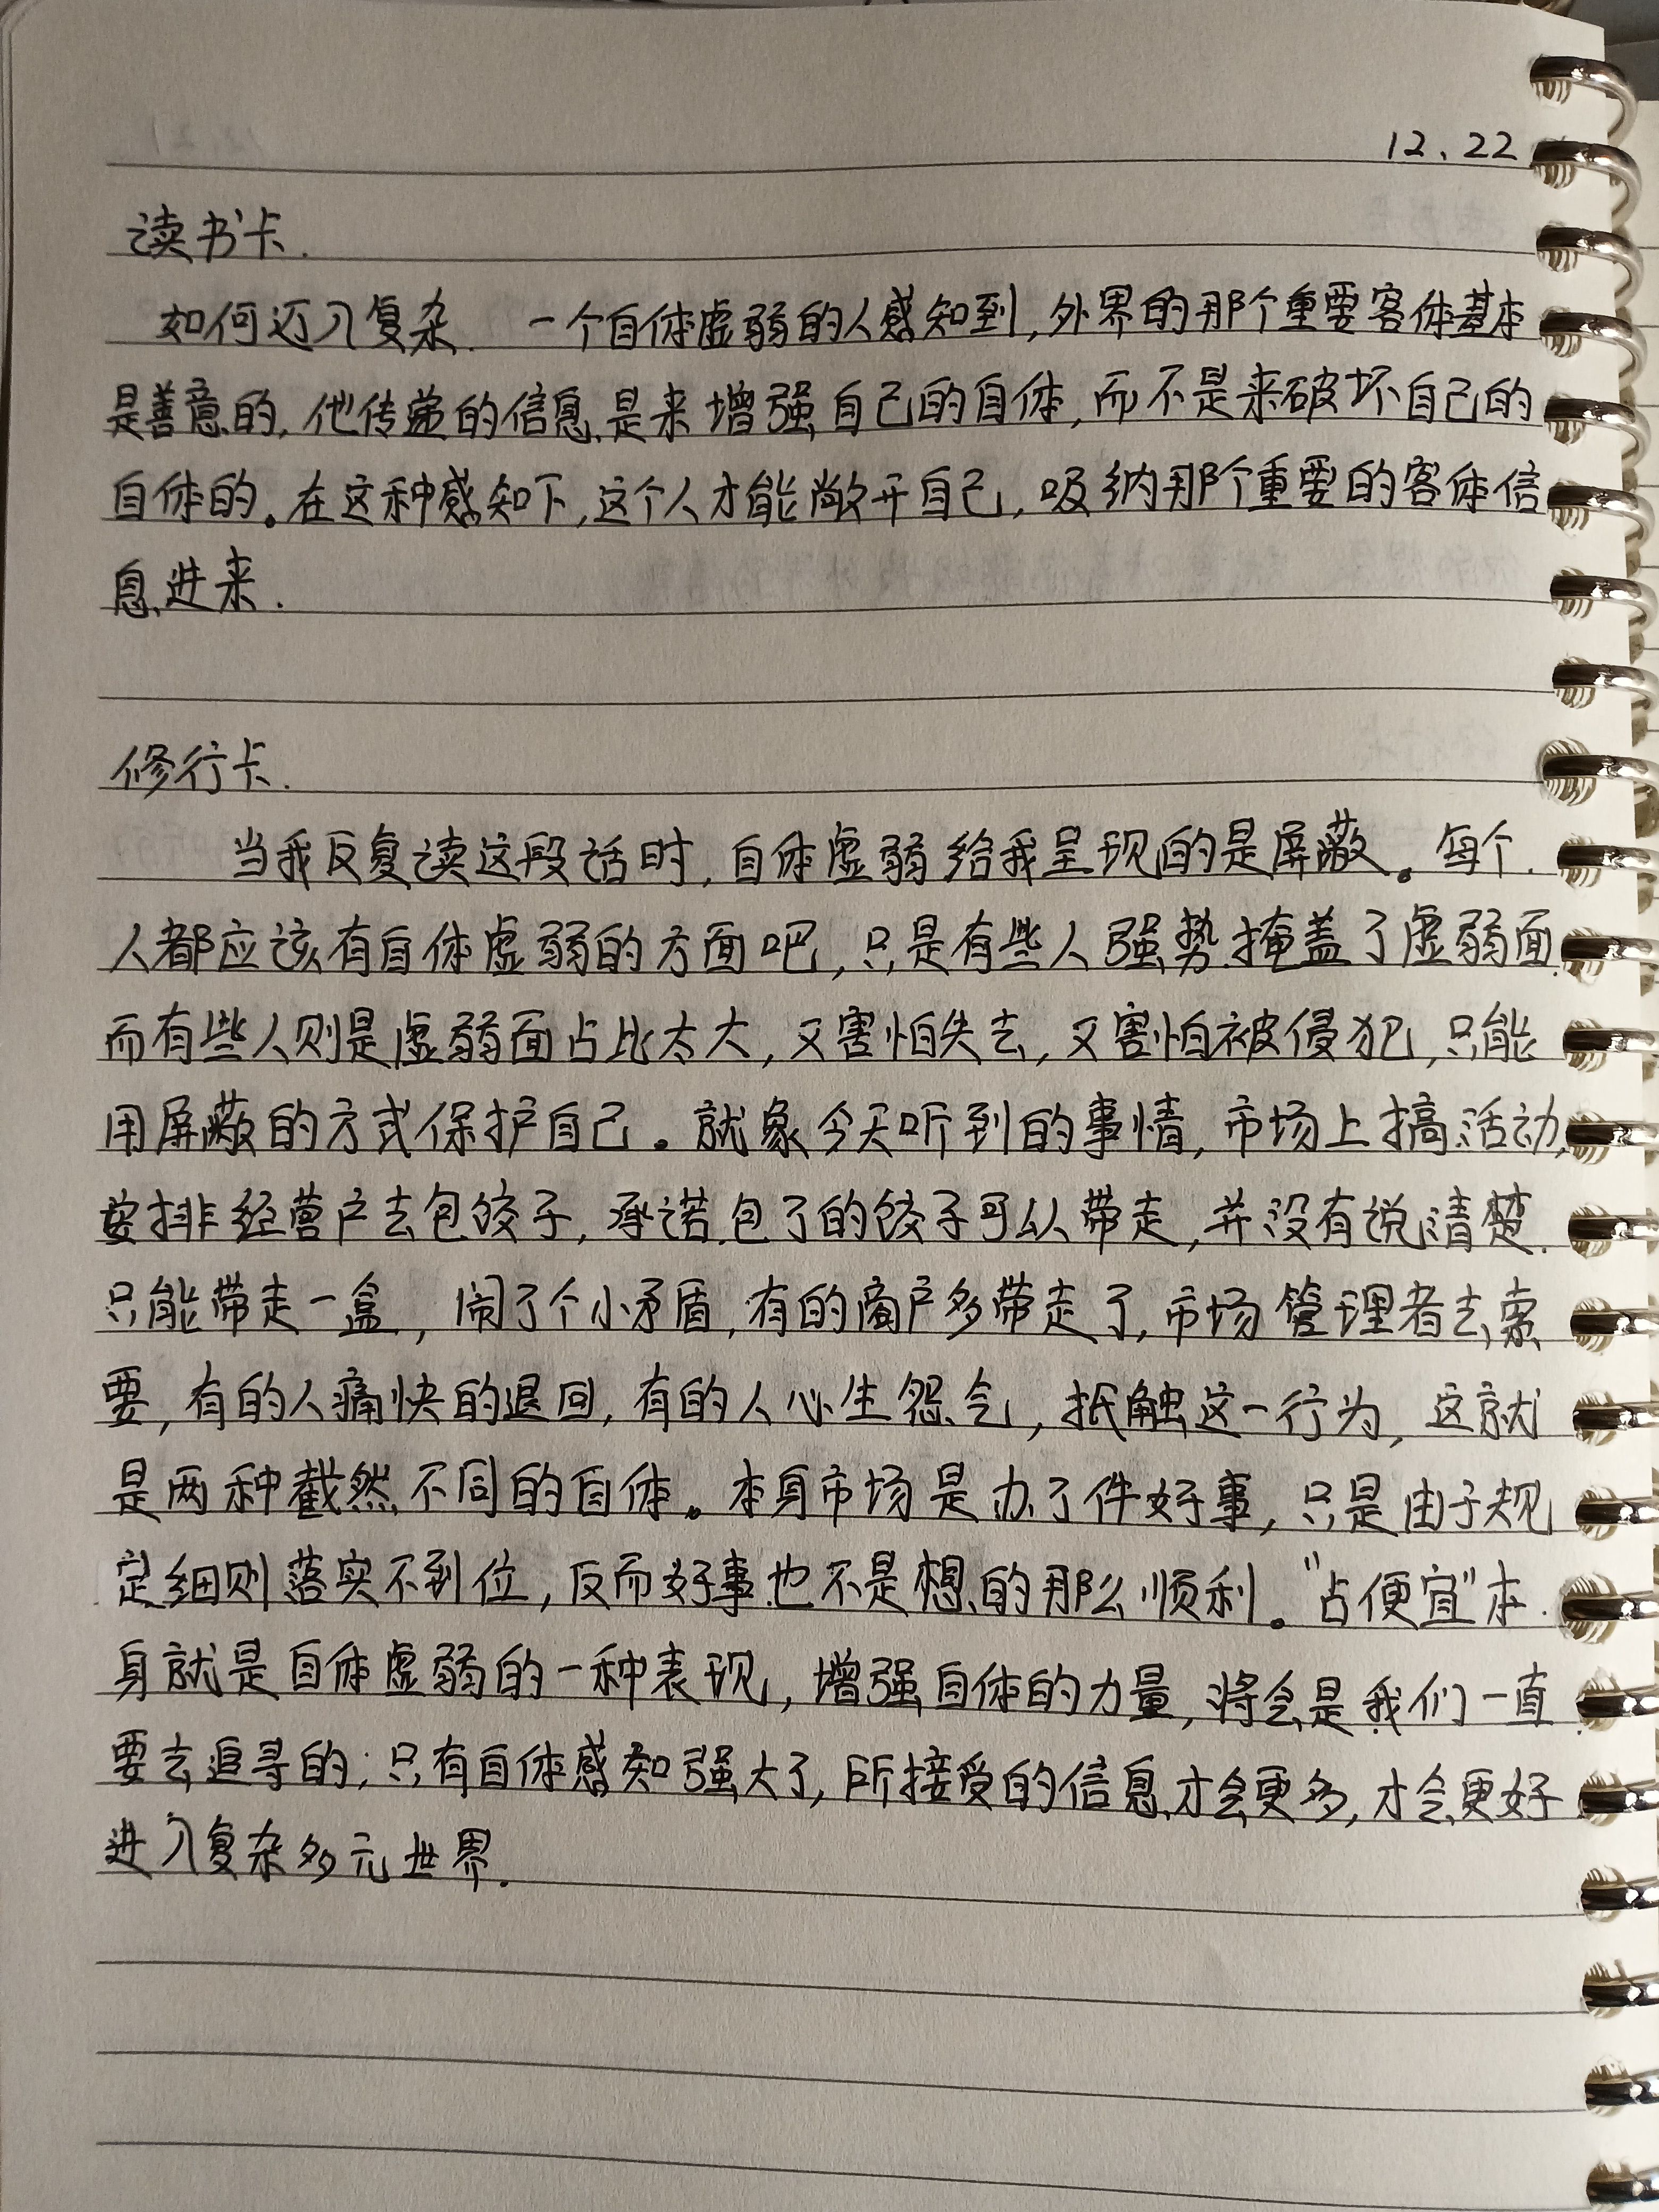 12.22
读书卡.
如何迈入复杂. 一个自体虚弱的人感知到,外界的那个重要客体基本
是善意的,他传递的信息是来增强自己的自体,而不是来破坏自己的
自体的。在这种感知下,这个人才能敞开自己,吸纳那个重要的客体信
息进来.
修行卡.
当我反复读这段话时,自体虚弱给我呈现的是屏蔽。每个
人都应该有自体虚弱的方面吧,只是有些人强势掩盖了虚弱面.
而有些人则是虚弱面占比太大,又害怕失去,又害怕被侵犯,只能
用屏蔽的方式保护自己。就象今天听到的事情,市场上搞活动,
安排经营户去包饺子,承诺包了的饺子可以带走,并没有说清楚.
只能带走一盒,闹了个小矛盾,有的商户多带走了,市场管理者去索
要,有的人痛快的退回,有的人心生怨气,抵触这一行为,这就
是两种截然不同的自体。本身市场是办了件好事,只是由于规
定细则落实不到位,反而好事也不是想的那么顺利。"占便宜"本
身就是自体虚弱的一种表现,增强自体的力量,将会是我们一直
要去追寻的;只有自体感知强大了,所接受的信息才会更多,才会更好
进入复杂多元世界.